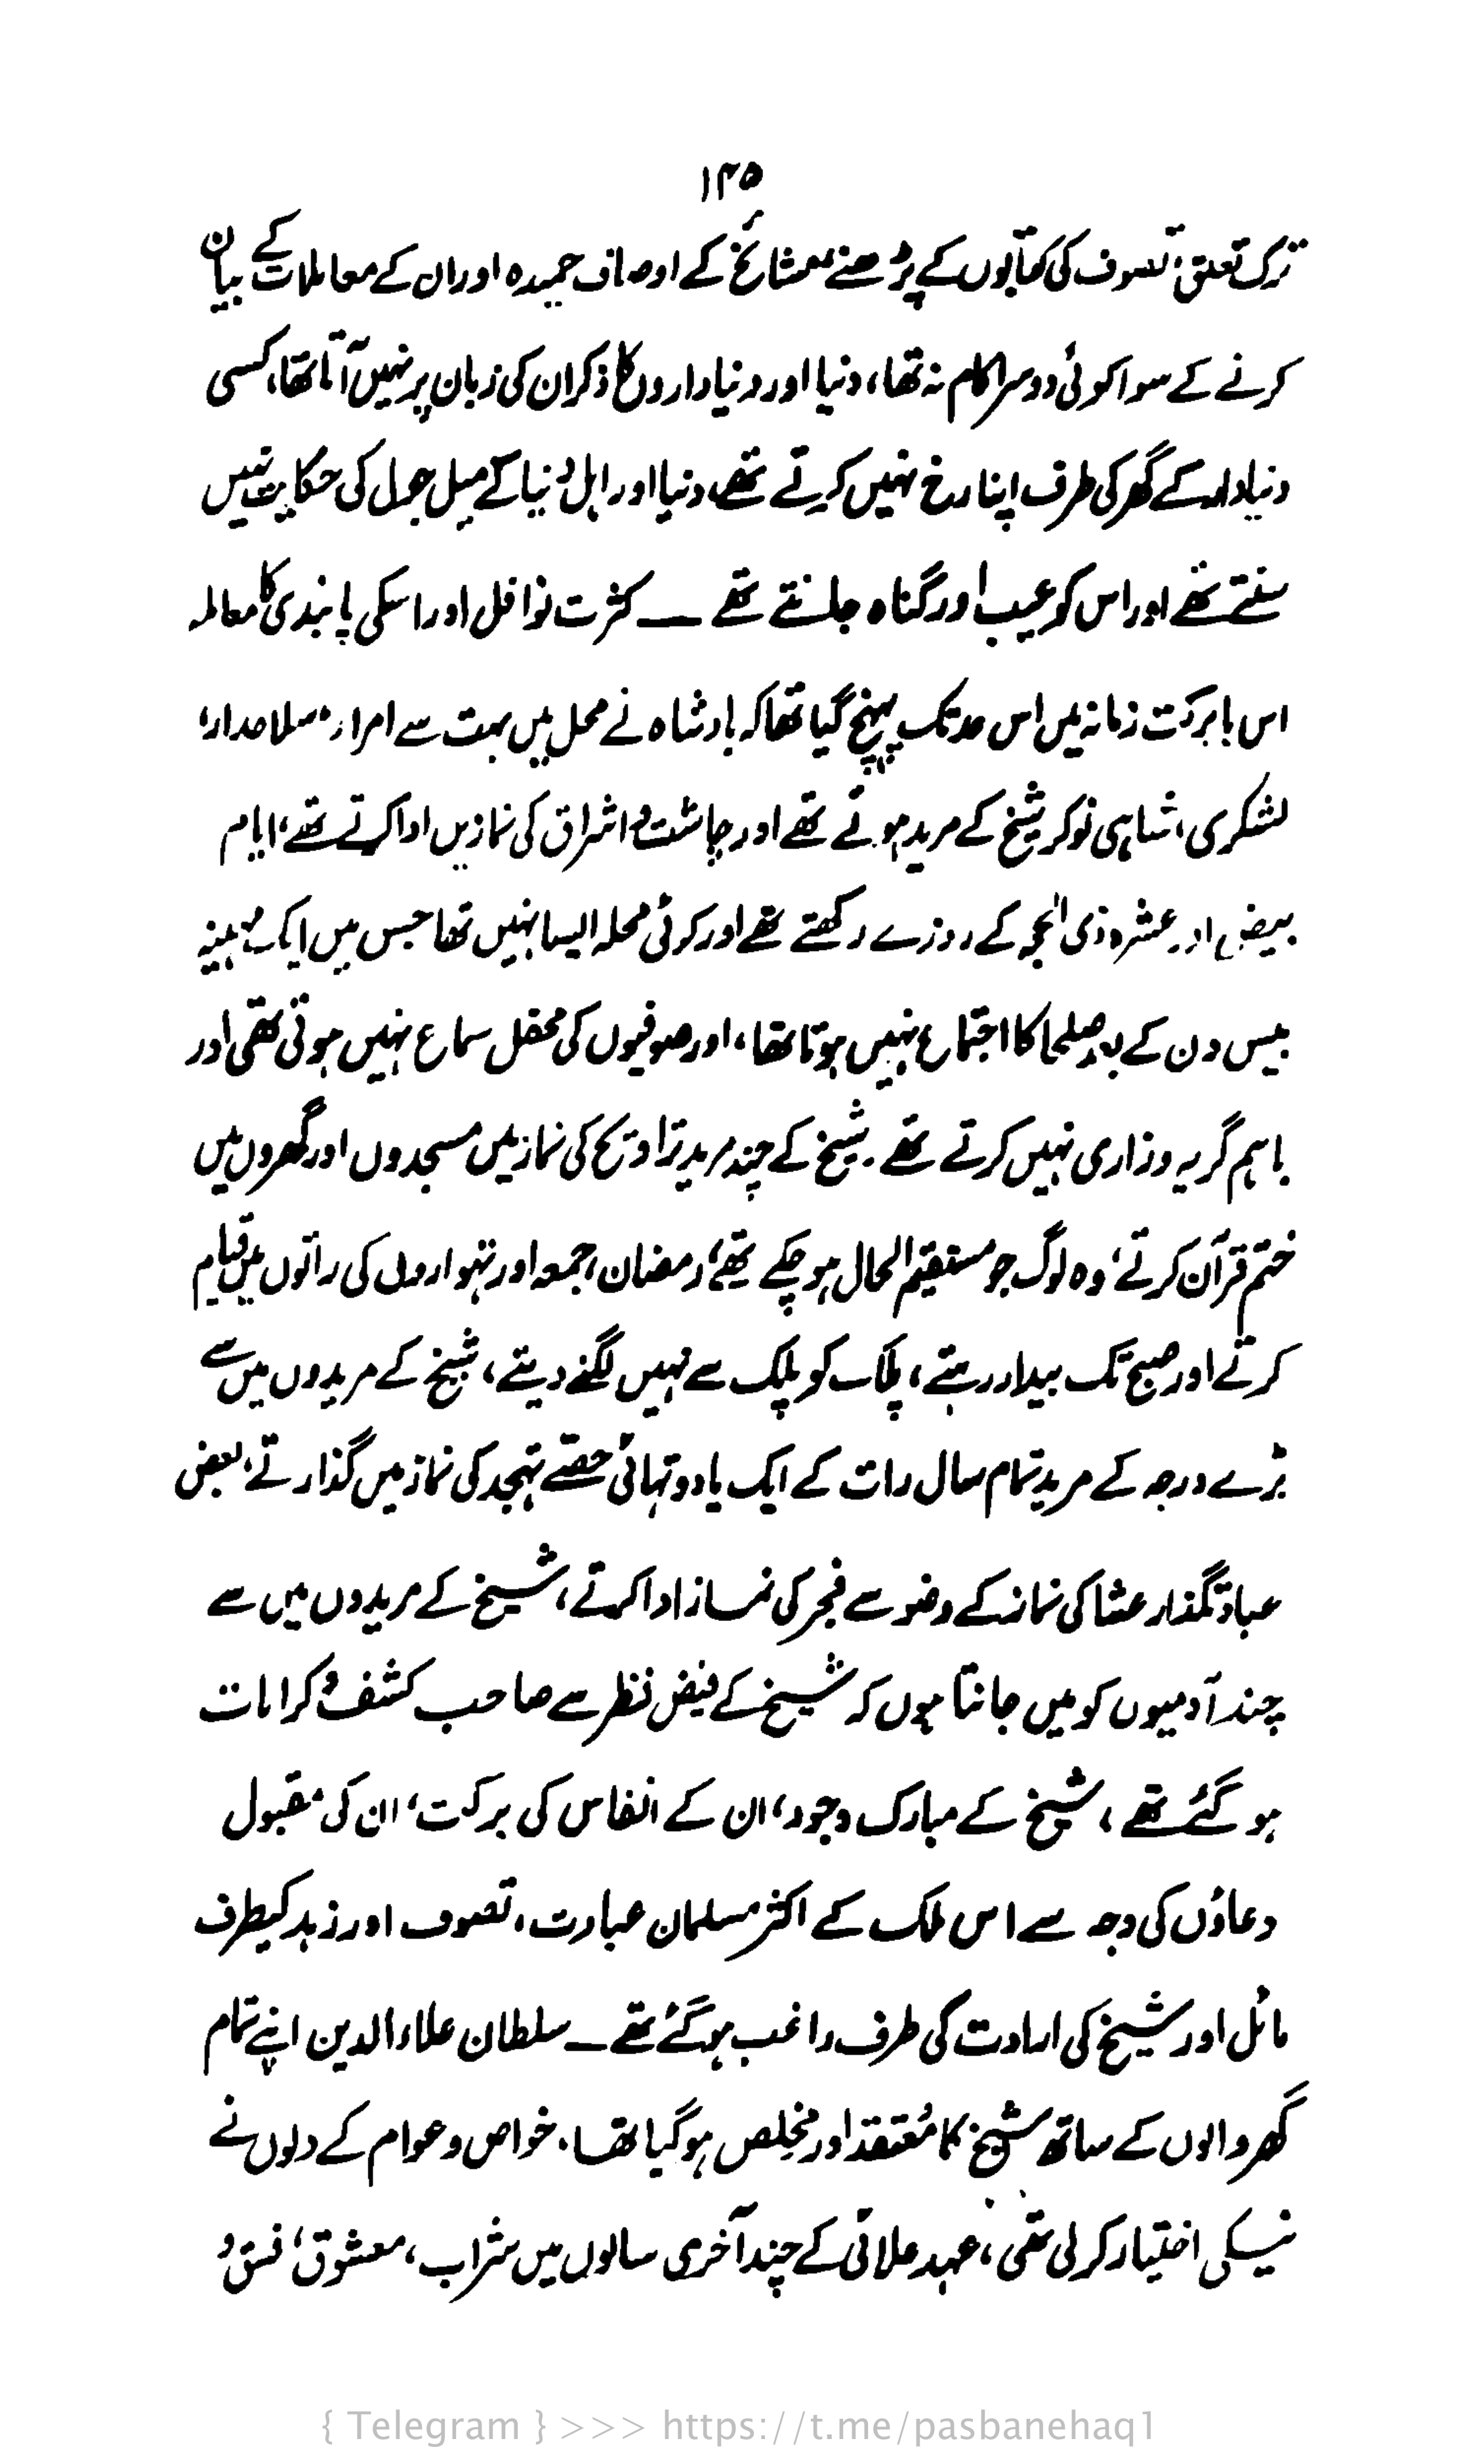 ۱۴۵
ترک تعلق، تصوف کی کتابوں کے پڑھنے، مشائخ کے اوصاف حمیدہ اور ان کے معاملات کے بیان
کرنے کے سوا کوئی دوسرا کام نہ تھا، دنیا اور دنیا داروں کا ذکر ان کی زبان پر نہیں آتا تھا، کسی
دنیا دار کے گھر کی طرف اپنا رخ نہیں کرتے تھے، دنیا اور اہل دنیا کے میل جول کی حکایت نہیں
سنتے تھے اور اس کو عیب اور گناہ جانتے تھے ــــ کثرت نوافل اور اسکی پابندی کا معاملہ
اس بابرکت زمانہ میں اس حد تک پہنچ گیا تھا کہ بادشاہ نے محل میں بہت سے امراء، سلاحدار،
لشکری، شاہی نوکر شیخ کے مرید ہوتے تھے اور چاشت و اشراق کی نمازیں ادا کرتے تھے، ایام
بیض اور عشرہ ذی الحجہ کے روزے رکھتے تھے اور کوئی محلہ ایسا نہیں تھا جس میں ایک مہینہ
بیس دن کے بعد صلحا کا اجتماع نہیں ہوتا تھا، اور صوفیوں کی محفل سماع نہیں ہوتی تھی اور
باہم گریہ وزاری نہیں کرتے تھے۔ شیخ کے چند مرید تراویح کی نماز میں مسجدوں اور گھروں میں
ختم قرآن کرتے، وہ لوگ جو مستقیم الحال ہو چکے تھے، رمضان، جمعہ اور تہواروں کی راتوں میں قیام
کرتے اور صبح تک بیدار رہتے، پلک کو پلک سے نہیں لگنے دیتے، شیخ کے مریدوں میں سے
بڑے درجہ کے مرید تمام سال رات کے ایک یا دو تہائی حصّے تہجد کی نماز میں گذارتے، بعض
عبادتگذار عشا کی نماز کے وضو سے فجر کی نماز ادا کرتے، شیخ کے مریدوں میں سے
چند آدمیوں کو میں جانتا ہوں کہ شیخ کے فیض نظر سے صاحب کشف و کرامات
ہو گئے تھے، شیخ کے مبارک وجود، ان کے انفاس کی برکت، ان کی مقبول
دعاؤں کی وجہ سے اس ملک کے اکثر مسلمان عبادت، تصوف اور زہد کیطرف
مائل اور شیخ کی ارادت کی طرف راغب ہو گئے تھے ـــ سلطان علاء الدین اپنے تمام
گھر والوں کے ساتھ شیخ کا مُعتقد اور مخلص ہو گیا تھا۔ خواص و عوام کے دلوں نے
نیکی اختیار کر لی تھی، عہد علائی کے چند آخری سالوں میں شراب، معشوق، فسق و
{ Telegram } >>> https://t.me/pasbanehaq1